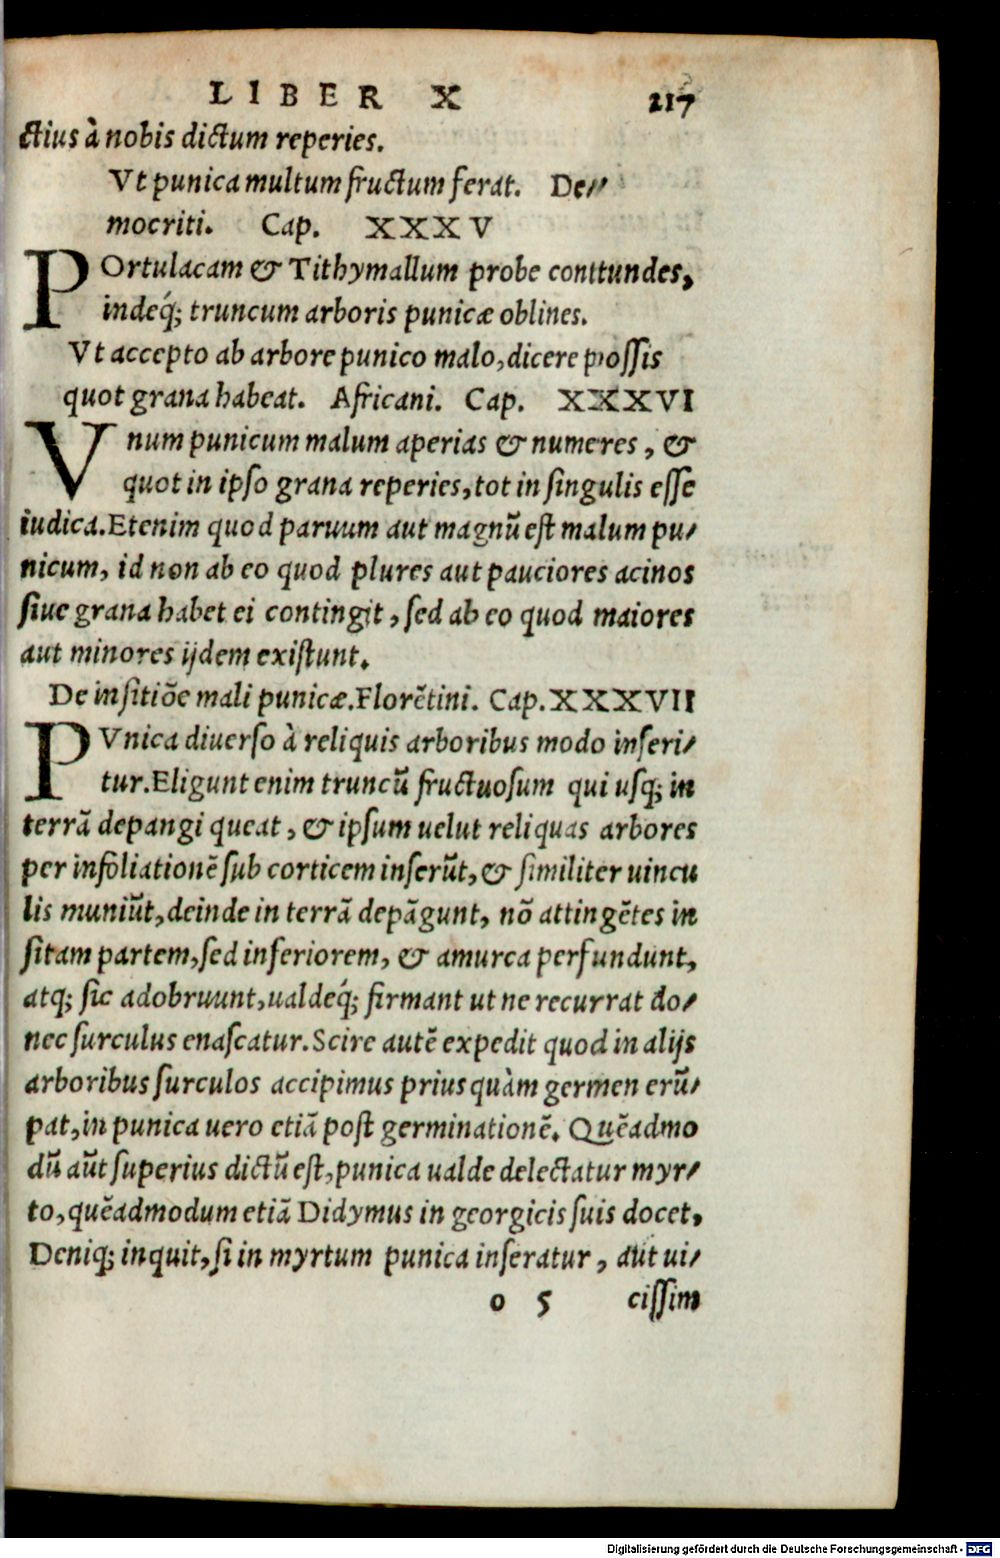 LIBER X 217
ctius à nobis dictum reperies.
Vt punica multum fructum ferat. De-
mocriti. Cap. XXXV
POrtulacam & Tithymallum probe conttundes,
indeq́; truncum arboris punicæ oblines.
Vt accepto ab arbore punico malo, dicere possis
quot grana habeat. Africani. Cap. XXXVI
Vnum punicum malum aperias & numeres, &
quot in ipso grana reperies, tot in singulis esse
iudica. Etenim quod paruum aut magnū est malum pu-
nicum, id non ab eo quod plures aut pauciores acinos
siue grana habet ei contingit, sed ab eo quod maiores
aut minores ijdem existunt.
De insitiōe mali punicæ. Florētini. Cap. XXXVII
PVnica diuerso à reliquis arboribus modo inseri-
tur. Eligunt enim truncū fructuosum qui usq; in
terrā depangi queat, & ipsum uelut reliquas arbores
per infoliationē sub corticem inserūt, & similiter uincu
lis muniūt, deinde in terrā depāgunt, nō attingētes in
sitam partem, sed inferiorem, & amurca perfundunt,
atq; sic adobruunt, ualdeq́; firmant ut ne recurrat do-
nec surculus enascatur. Scire autē expedit quod in alijs
arboribus surculos accipimus prius quàm germen erū-
pat, in punica uero etiā post germinationē. Quēadmo
dū aūt superius dictū est, punica ualde delectatur myr-
to, quēadmodum etiā Didymus in georgicis suis docet,
Deniq; inquit, si in myrtum punica inseratur, aut ui-
o 5 cissim
Digitalisierung gefördert durch die Deutsche Forschungsgemeinschaft - DFG